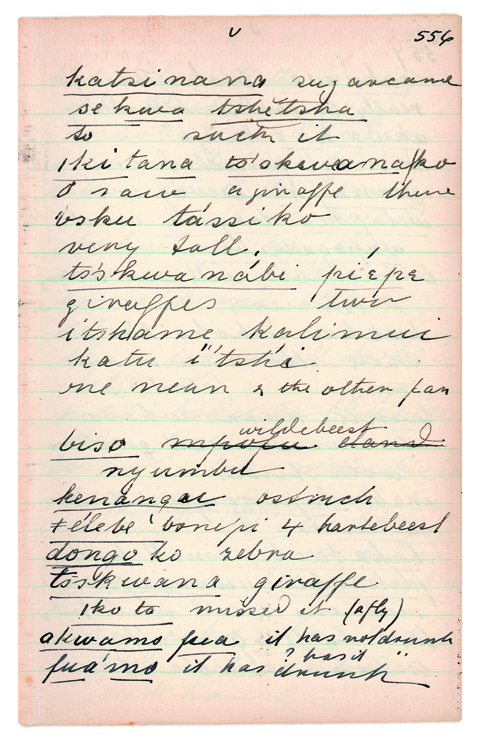 v 556
katsinana sugarcane
sekwa tshetsha
to suck it
ıkitana ts'okwana/ko
I saw a giraffe there
usku tássiko
very tall.
ts'okwanábi piépe
giraffes two
itshame kalimui
katu i"tshé
one near & the other far
wildebeest
biso mpofu eland
nyumbu
kenangai ostrich
ǂélebé bonepi 4 hartebeest
dongoko zebra
tsokwana giraffe
ıko to missed it (a fly)
akwamo fua it has not drunk
? has it
fuámo it has drunk